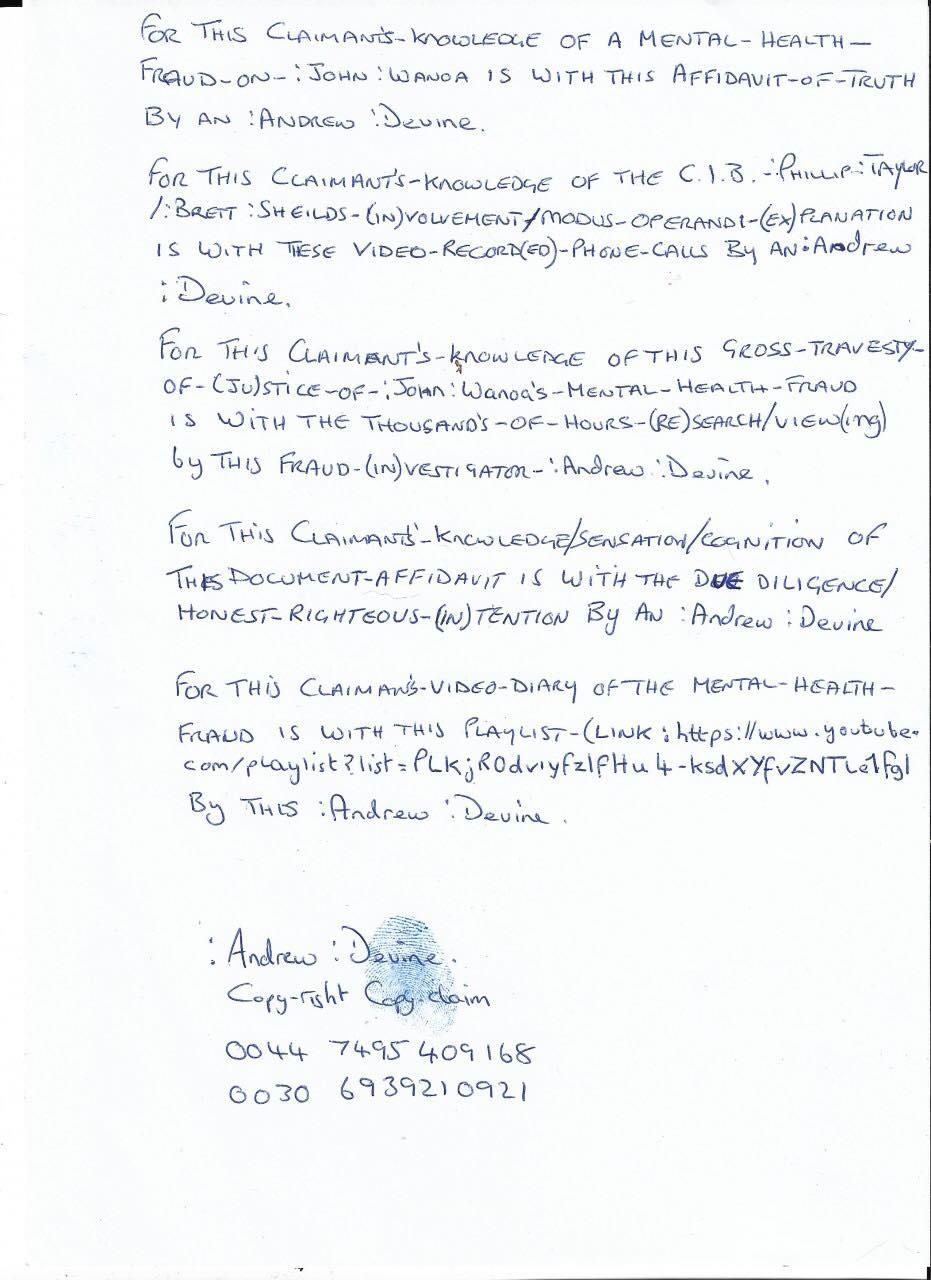 FOR THIS CLAIMANT'S-KNOWLEDGE OF A MENTAL-HEALTH-
FRAUD-ON-:JOHN :WANOA IS WITH THIS AFFIDAVIT-OF-TRUTH
BY AN :ANDREW :Devine.
FOR THIS CLAIMANT'S-KNOWLEDGE OF THE C.I.B.-:PHILLIP:TAYLOR
/:BRETT :SHEILDS-(IN)VOLVEMENT/MODUS-OPERANDI-(EX)PLANATION
IS WITH THESE VIDEO-RECORD(ED)-PHONE-CALLS BY AN:Andrew
:Devine.
FOR THIS CLAIMANT'S-KNOWLEDGE OF THIS GROSS-TRAVESTY-
OF-(JU)STICE-OF-:JOHN:Wanoa's-MENTAL-HEALTH-FRAUD
IS WITH THE THOUSAND'S-OF-HOURS-(RE)SEARCH/VIEW(ing)
by THIS FRAUD-(IN)VESTIGATOR-:Andrew :Devine.
FOR THIS CLAIMANT'S-KNOWLEDGE/SENSATION/COGNITION OF
THIS DOCUMENT-AFFIDAVIT IS WITH THE DUE DILIGENCE/
HONEST-RIGHTEOUS-(IN)TENTION BY AN :Andrew :Devine
FOR THIS CLAIMAN'S-VIDEO-DIARY OF THE MENTAL-HEALTH-
FRAUD IS WITH THIS PLAYLIST-(LINK: https://www.youtube.
com/playlist?list=PLKjROdviyfzlfHu4-ksdXYfvZNTLe1fgl
By THIS :Andrew :Devine.
:Andrew :Devine.
Copy-right Copy-claim
0044 7495 409168
0030 6939210921